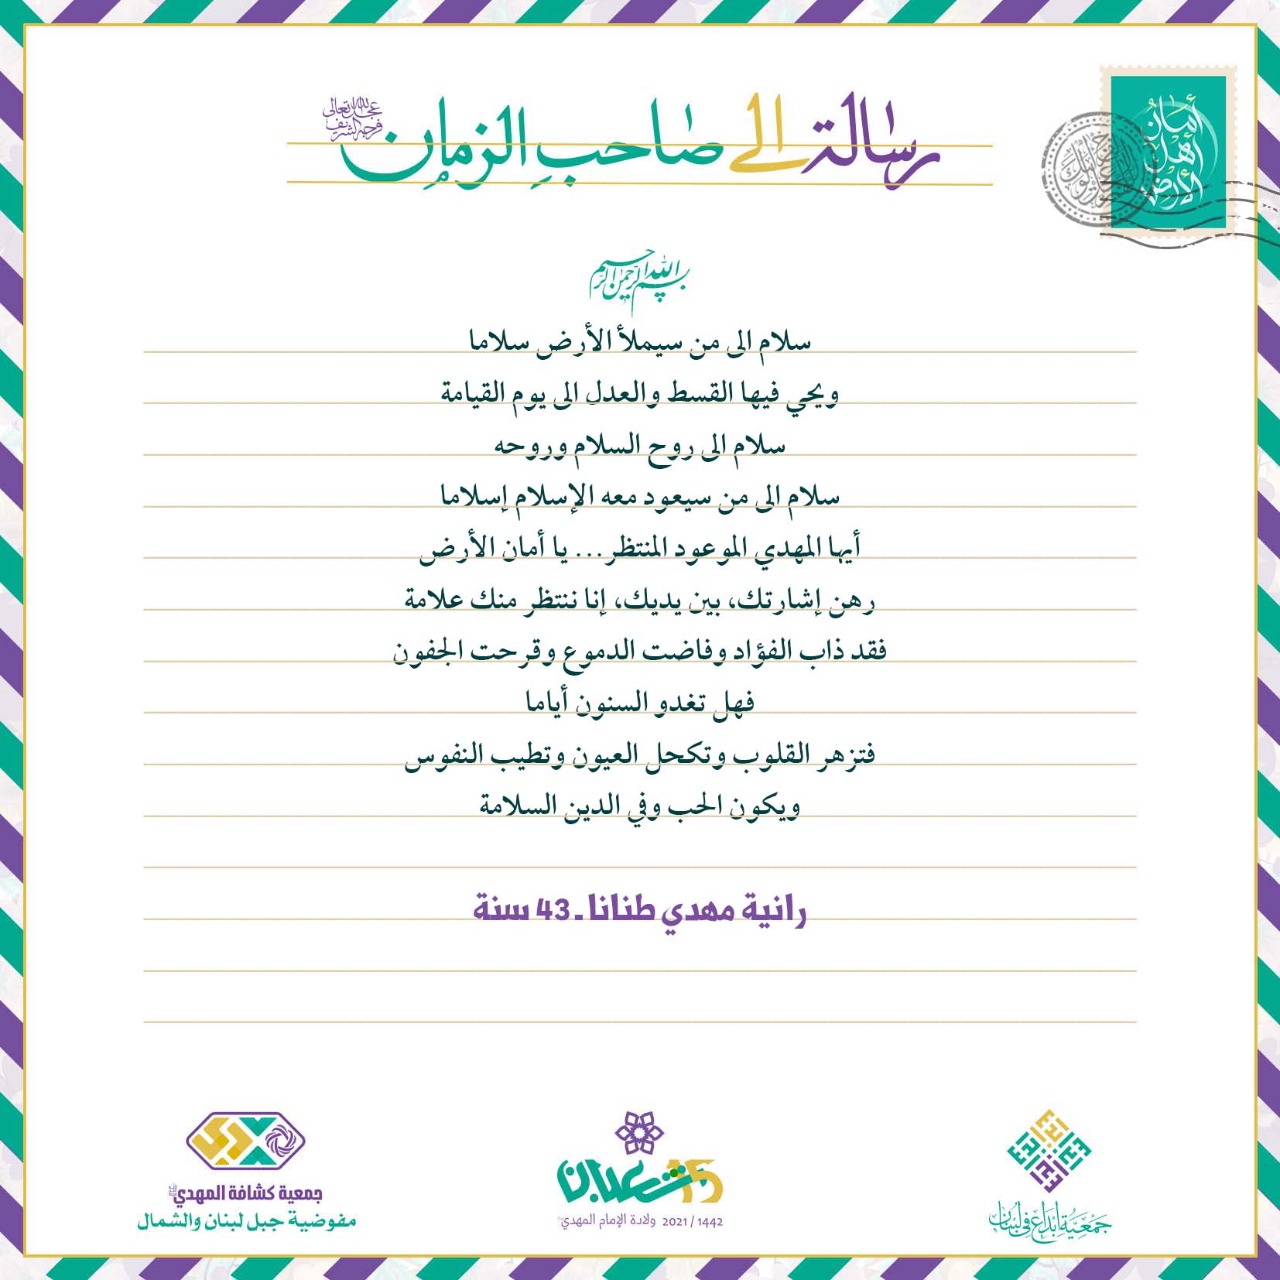 رسالة إلى صاحب الزمان
عجل الله تعالى فرجه الشريف
أمان أهل الأرض
بسم الله الرحمن الرحيم
سلام الى من سيملأ الأرض سلاما
ويحي فيها القسط والعدل الى يوم القيامة
سلام الى روح السلام وروحه
سلام الى من سيعود معه الإسلام إسلاما
أيها المهدي الموعود المنتظر... يا أمان الأرض
رهن إشارتك، بين يديك، إنا ننتظر منك علامة
فقد ذاب الفؤاد وفاضت الدموع وقرحت الجفون
فهل تغدو السنون أياما
فتزهر القلوب وتكحل العيون وتطيب النفوس
ويكون الحب وفي الدين السلامة
رانية مهدي طنانا - 43 سنة
جمعية إبداع في لبنان
15 شعبان
ولادة الإمام المهدي 2021 / 1442
جمعية كشافة المهدي
مفوضية جبل لبنان والشمال